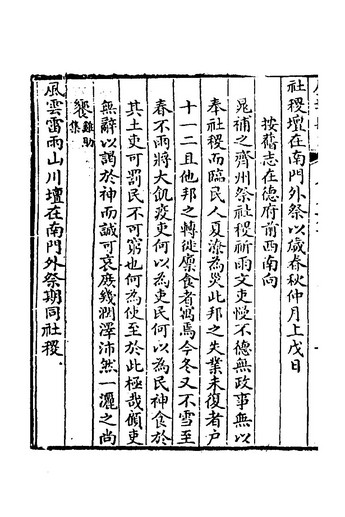 社稷壇在南門外祭以歲春秋仲月上戊日
按舊志在德府前西南向
晁補之齊州祭社稷祈雨文吏慢不德無政事無以
奉社稷而臨民人夏潦為災此邦之失業未復者戶
十一二且他邦之轉徙廩食者寓焉今冬又不雪至
春不雨將大飢疫吏何以為吏民何以為民神食於
其土吏可罰民不可窮也何為使至於此極哉傾吏
無辭以謁於神而誠可哀庶幾潤澤沛然一灑之尚
饗雞助集
風雲雷雨山川壇在南門外祭期同社稷